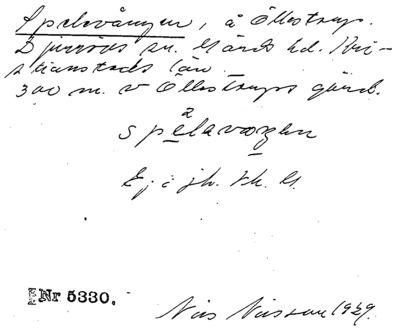 Spelevången, å Öllestrup.
Djurröds sn. Gärds hd. Kri-
stianstads län
300 m. v Öllestrups gård.
2
spelavaŋen
Ej i jb. Vk. G.
Nr 5330.
Nils Nilsson 1929.